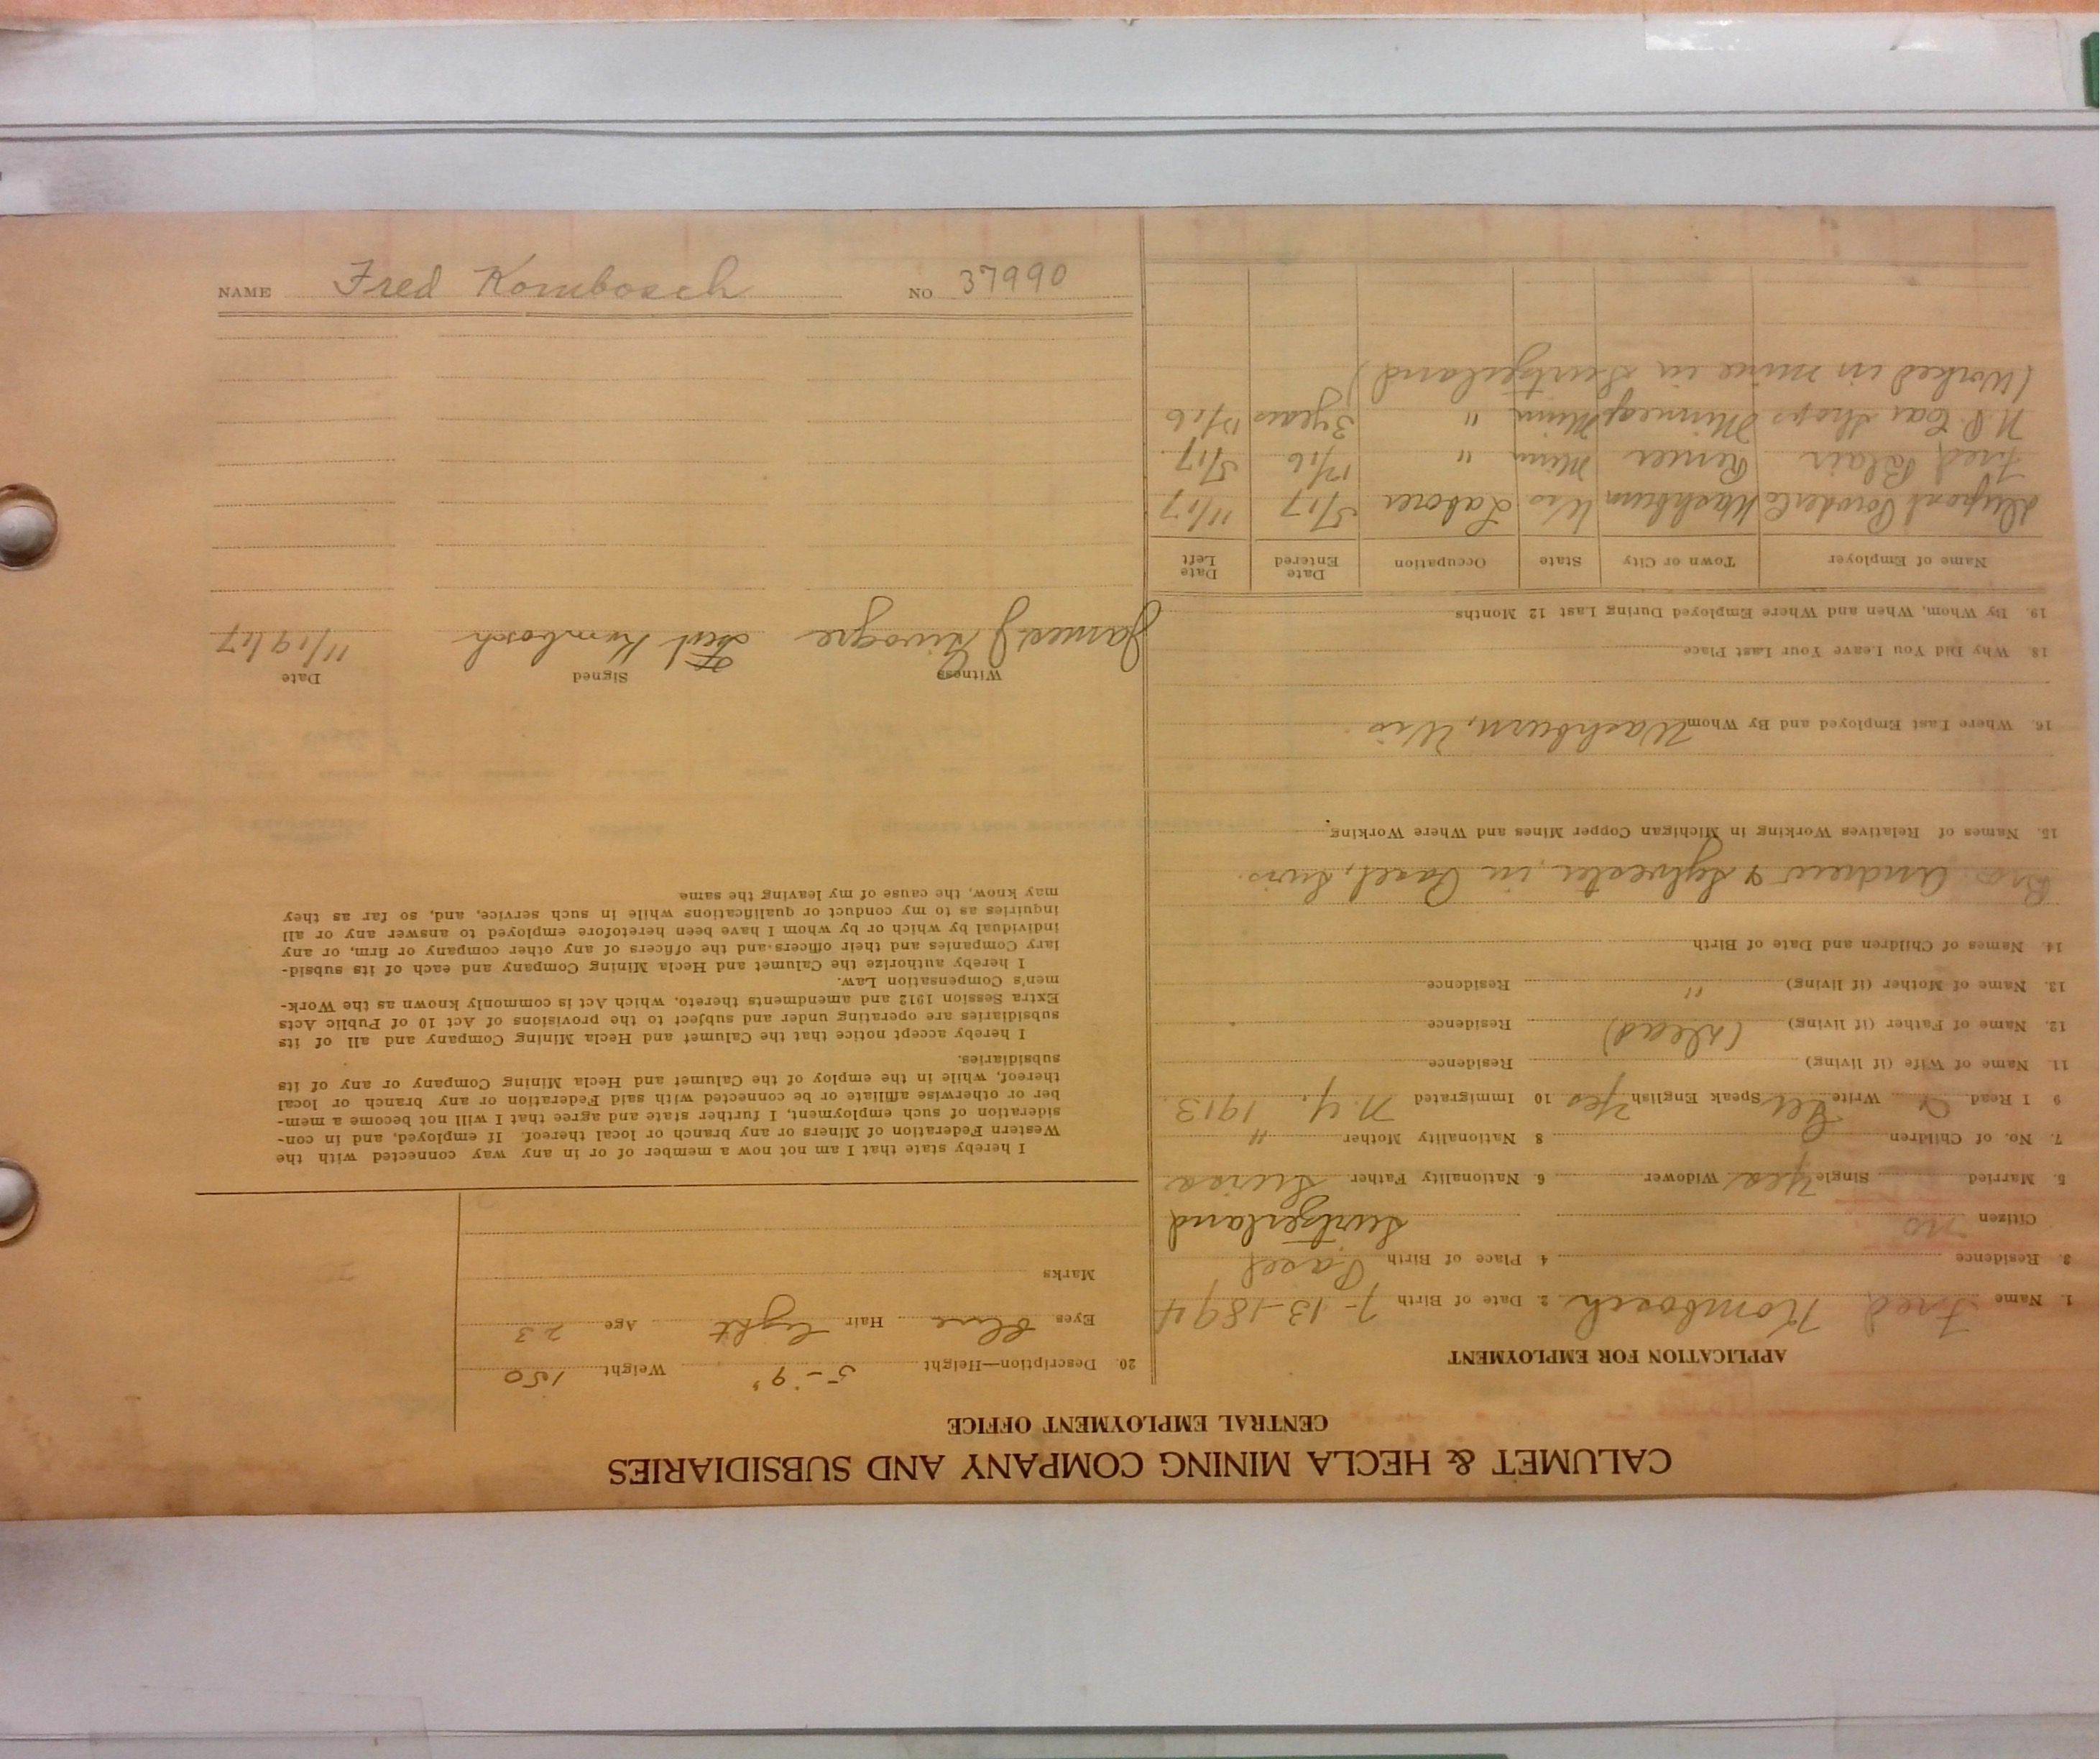 CALUMET & HECLA MINING COMPANY AND SUBSIDIARIES
CENTRAL EMPLOYMENT OFFICE
APPLICATION FOR EMPLOYMENT
1. Name Fred Kombosch 2. Date of Birth 7-13-1894
3. Residence 4 Place of Birth Basel
Citizen no Switzerland
5. Married Single yes Widower 6. Nationality Father Swiss
7. No. of Children 8 Nationality Mother "
9 I Read Write Speak English Yes 10 Immigrated N.Y. 1913
11. Name of Wife (if living) Residence
12. Name of Father (if living) (dead) Residence
13. Name of Mother (if living) " Residence
14. Names of Children and Date of Birth
Bros. Andrew & Sylvester in Basel, Swis.
15. Names of Relatives Working in Michigan Copper Mines and Where Working
16. Where Last Employed and By Whom Washburn, Wis.
18. Why Did You Leave Your Last Place
19. By Whom, When and Where Employed During Last 12 Months
Name of Employer Town or City State Occupation Date Entered Date Left
Dupont Powder Co Washburn Wis Laborer 5/17 11/17
Fred Blair Remer Minn " 12/16 5/17
N.P. Car Shops Minneap Minn " 3 years 12/16
(Worked in mine in Switzerland)
20. Description—Height 5-9" Weight 150
Eyes Blue Hair light Age 23
Marks
I hereby state that I am not now a member of or in any way connected with the
Western Federation of Miners or any branch or local thereof. If employed, and in con-
sideration of such employment, I further state and agree that I will not become a mem-
ber or otherwise affiliate or be connected with said Federation or any branch or local
thereof, while in the employ of the Calumet and Hecla Mining Company or any of its
subsidiaries.
I hereby accept notice that the Calumet and Hecla Mining Company and all of its
subsidiaries are operating under and subject to the provisions of Act 10 of Public Acts
Extra Session 1912 and amendments thereto, which Act is commonly known as the Work-
men's Compensation Law.
I hereby authorize the Calumet and Hecla Mining Company and each of its subsid-
iary Companies and their officers and the officers of any other company or firm, or any
individual by which or by whom I have been heretofore employed to answer any or all
inquiries as to my conduct or qualifications while in such service, and, so far as they
may know, the cause of my leaving the same
Witness Signed Date
James J Kombosch 11/19/17
NAME Fred Kombosch NO 37990